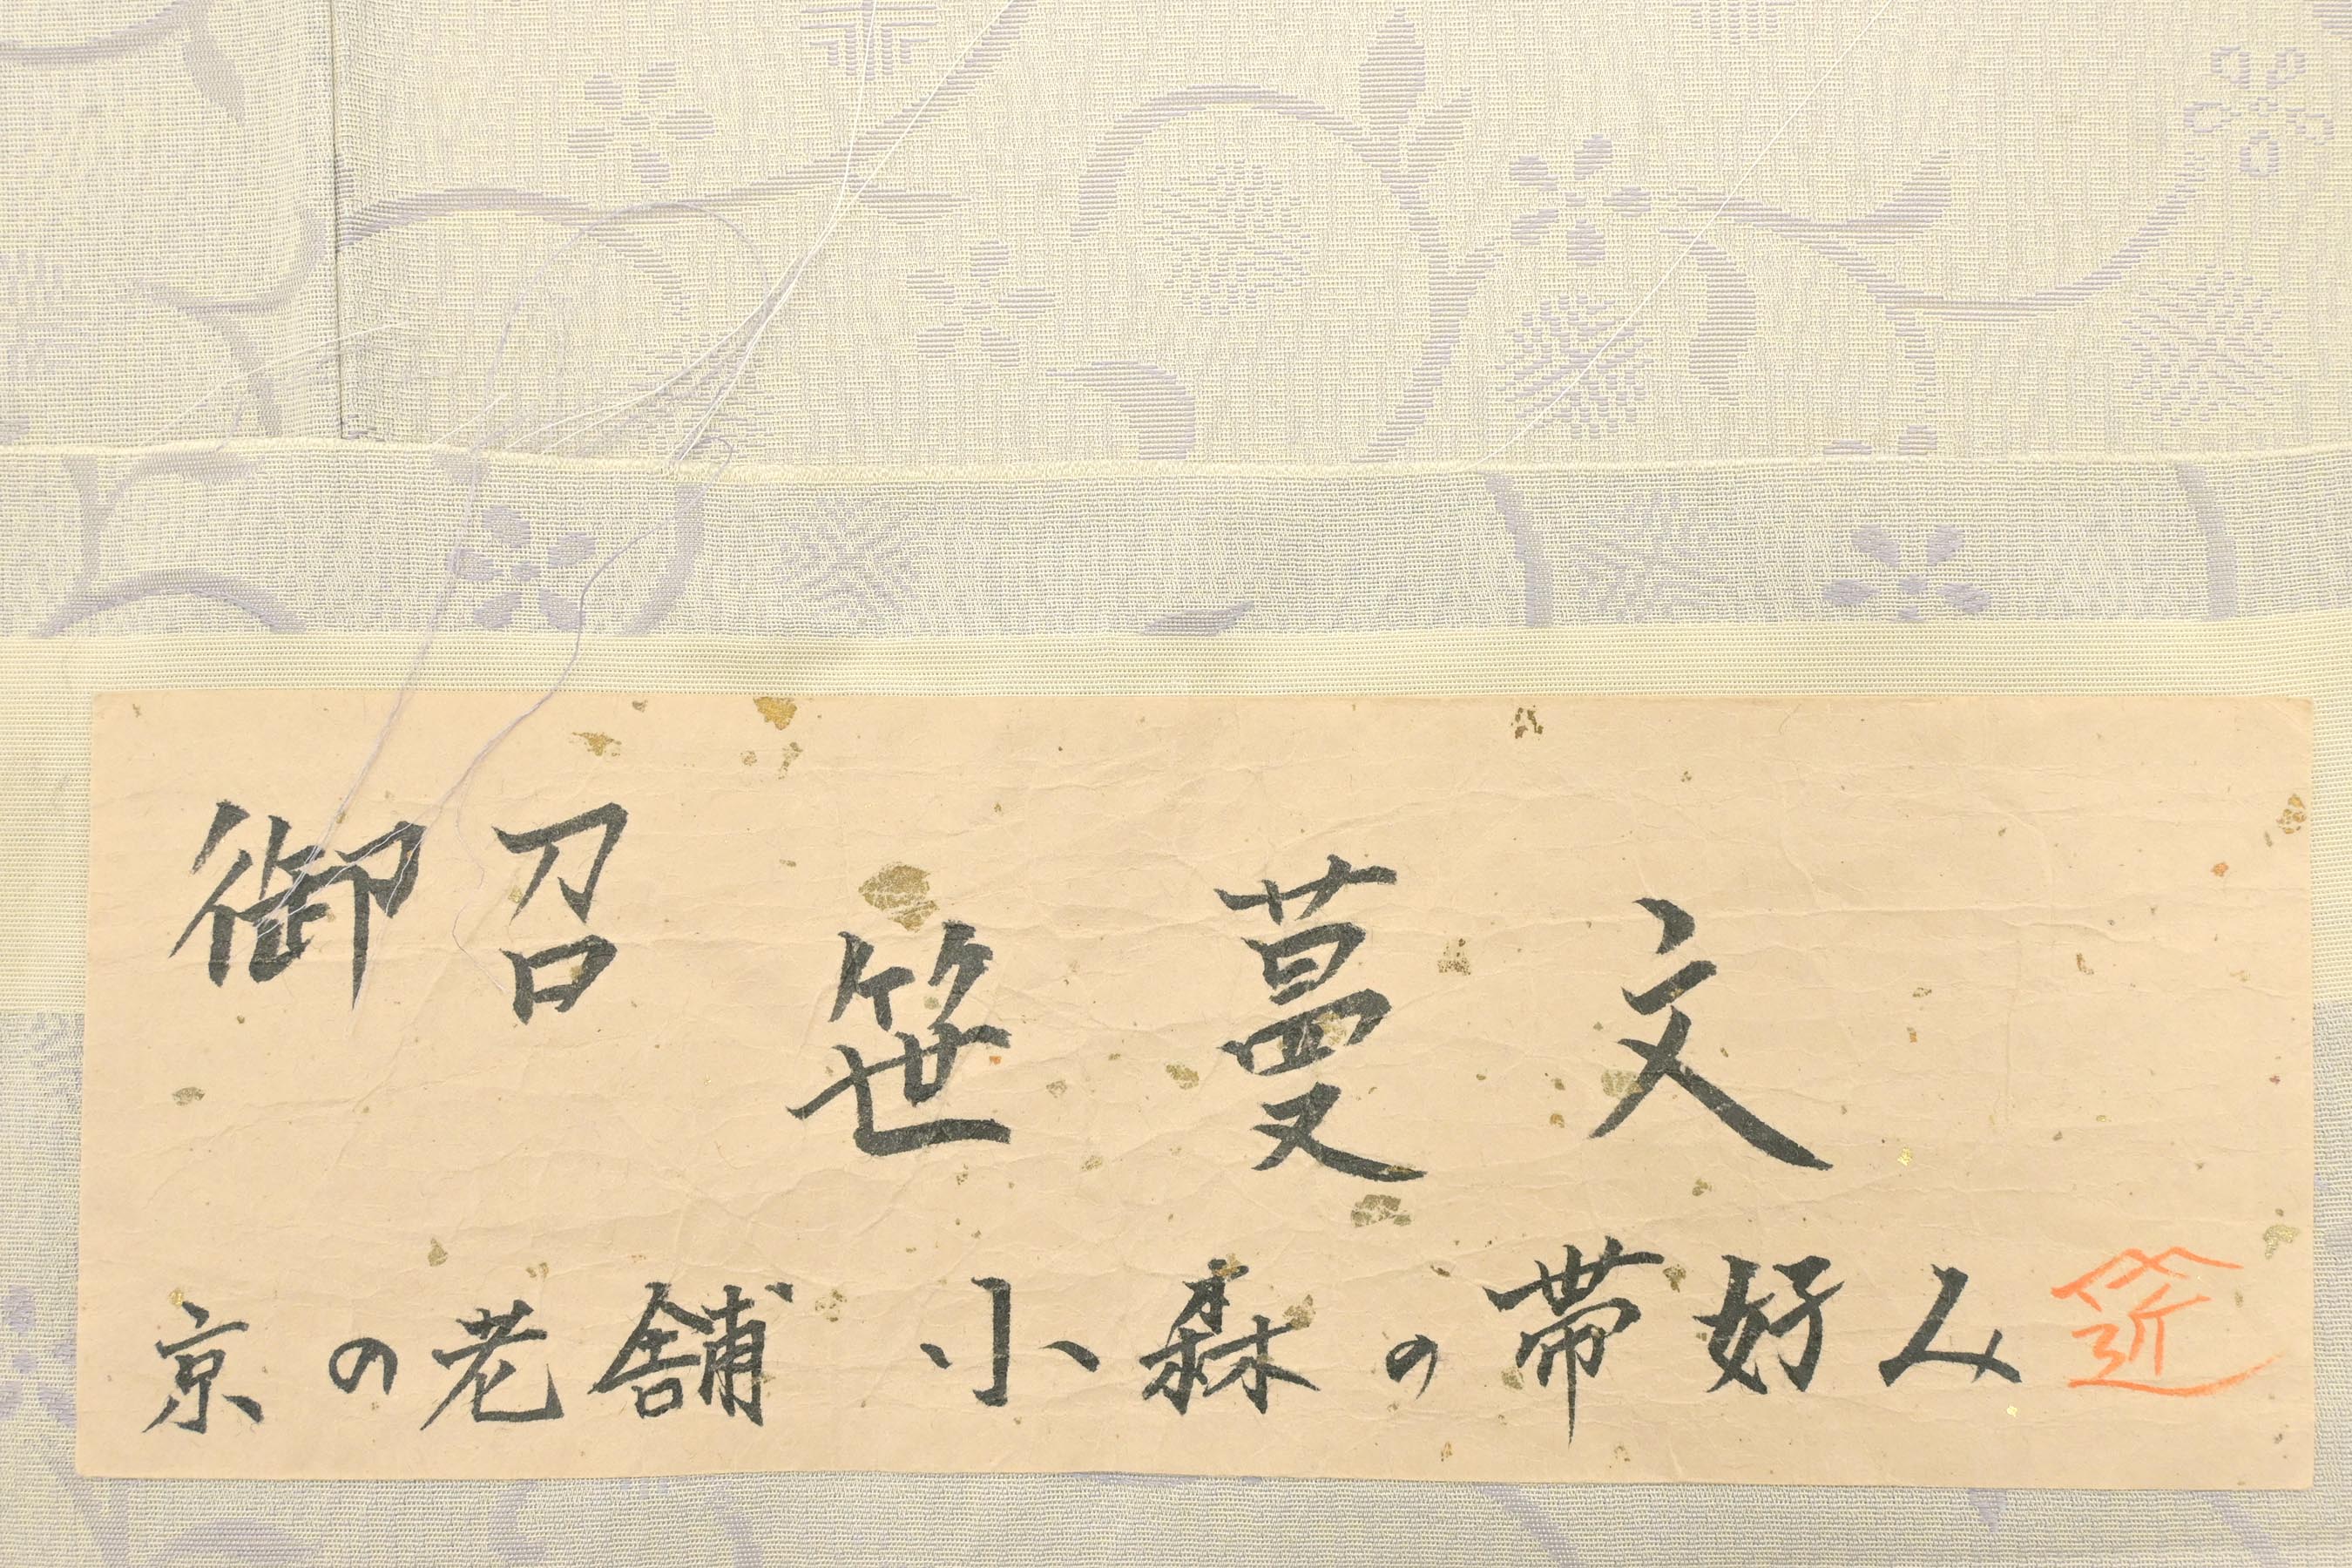 御召 笹蔓文
京の老舗 小森の帯好み